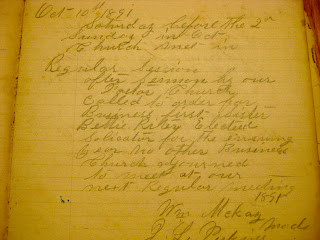 Oct 10th 1891
Saturday before the 2nd
Sunday in Oct
Church met in
Regular Session
after Sermon by our
Pastor Church
Called to order for
Business first
Elected
for the ensuing
year no other Business
Church ajourned
to meet at our
next Regular meeting
1891
Wm McKay
Mod